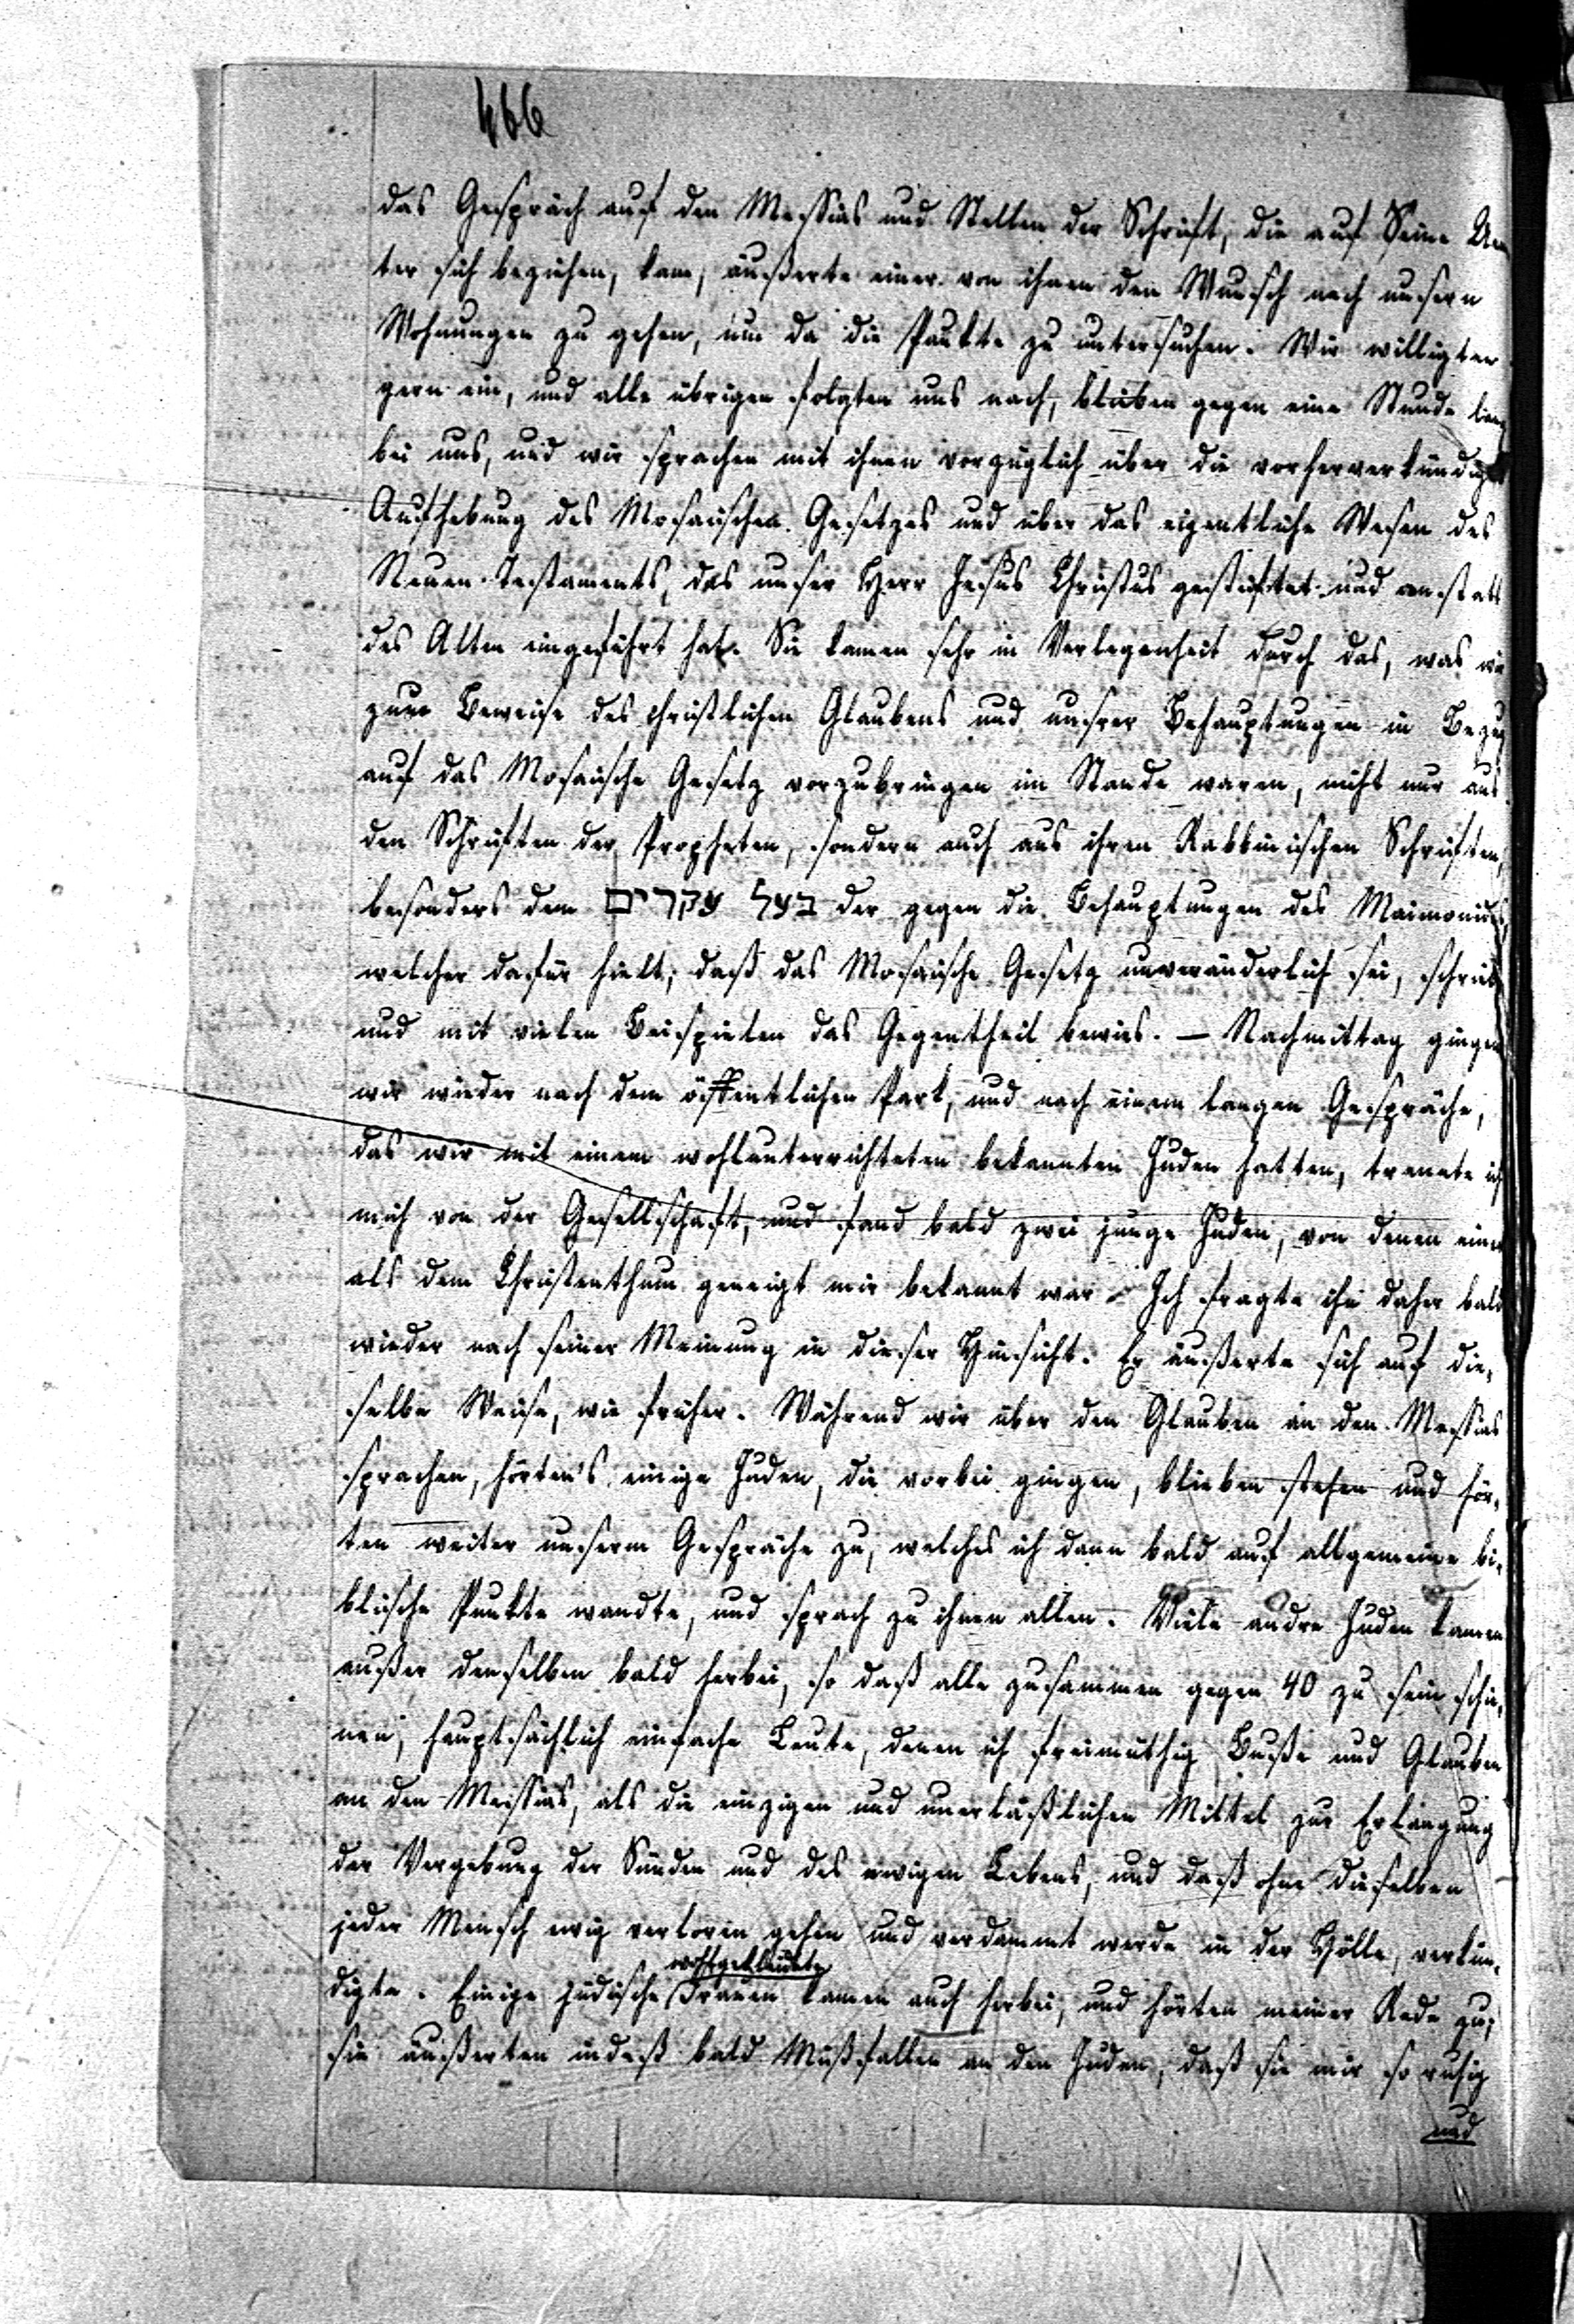 466
das Gespräch auf den Messias und Stellen der Schrift, die auf Seine
ter sich beziehen, kam, äußerte einer von ihnen den Wunsch nach unsern
Wohnungen zu gehen, um da die Punkte zu untersuchen. Wir willigten
gern ein, und alle übrigen folgten uns nach, blieben gegen eine Stunde lang
bei uns, und wir sprachen mit ihnen vorzüglich über die vorherverkündigte
Aufhebung des Mosaischen Gesetzes und über das eigentliche Wesen des
Neuen Testaments, das unser Herr Jesus Christus gestiftet und anstatt
des Alten eingeführt hat. Sie kamen sehr in Verlegenheit durch das, was wir
zum Beweise des christlichen Glaubens und unsrer Behauptungen in Bezug
auf das Mosaische Gesetz vorzubringen im Stande waren, nicht nur aus
den Schriften der Propheten, sondern auch aus ihren Rabbinischen Schriften,
besonders dem בעל עקרים der gegen die Behauptungen des Maimonides,
welcher dafür hielt, daß das Mosaische Gesetz unveränderlich sei, schrieb
und mit vielen Beispielen das Gegentheil bewies. — Nachmittag gingen
wir wieder nach dem öffentlichen Park, und nach einem langen Gespräche,
das wir mit einem wohlunterrichteten bekannten Juden hatten, trennte ich
mich von der Gesellschaft, und fand bald zwei junge Juden, von denen einer
als dem Christenthum geneigt mir bekannt war. Ich fragte ihn daher bald
wieder nach seiner Meinung in dieser Hinsicht. Er äußerte sich auf die-
selbe Weise, wie früher. Während wir über den Glauben an den Messias
sprachen, hörten's einige Juden, die vorbei gingen, blieben stehen und hör-
ten weiter unserm Gespräche zu, welches ich dann bald auf allgemeine bi-
blische Punkte wandte, und sprach zu ihnen allen. Viele andre Juden kamen
außer denselben bald herbei, so daß alle zusammen gegen 40 zu sein schie-
nen, hauptsächlich einfache Leute, denen ich freimüthig Buße und Glauben
an den Messias, als die einzigen und unerläßlichen Mittel zur Erlangung
der Vergebung der Sünden und des ewigen Lebens, und daß ohne dieselben
jeder Mensch ewig verloren gehen und verdammt werde in der Hölle, verkün-
wohlgekleidete
digte. Einige jüdische Frauen kamen auch herbei, und hörten meiner Rede zu;
sie äußerten indeß bald Mißfallen an den Juden, daß sie mir so ruhig
und